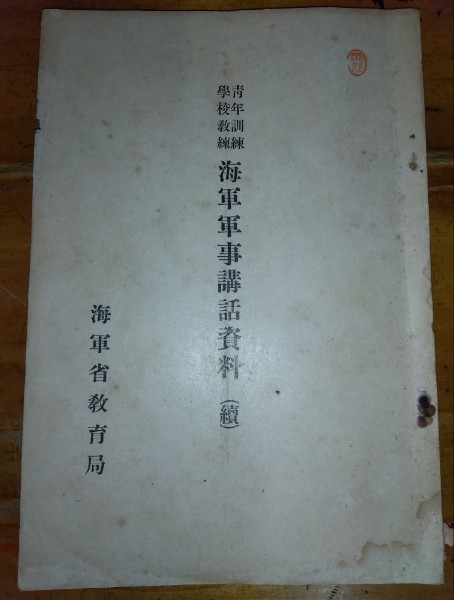 青年訓練
學校教練
海軍軍事講話資料（續）
海軍省教育局